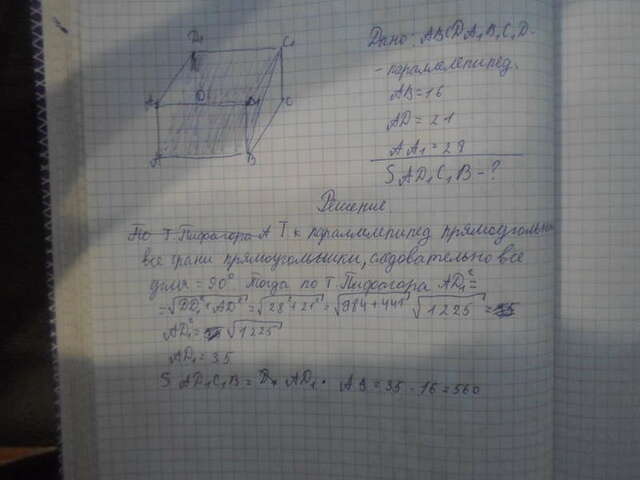 D₁
C₁
A₁
D
B₁
C
A
B
Дано: ABCDA₁B₁C₁D₁
- параллелепипед.
AB=16
AD=21
AA₁=28
S AD₁C₁B - ?
Решение
По Т Пифагора А Т к параллелепипед прямоугольн
все грани прямоугольники, следовательно все
углы = 90°. Тогда по Т Пифагора AD₁²=
=√DD₁²+AD²=√28²+21²=√784+441 √1225 = 35
AD₁²= √1225
AD₁=35
S AD₁C₁B = AD₁ · AB=35·16=560